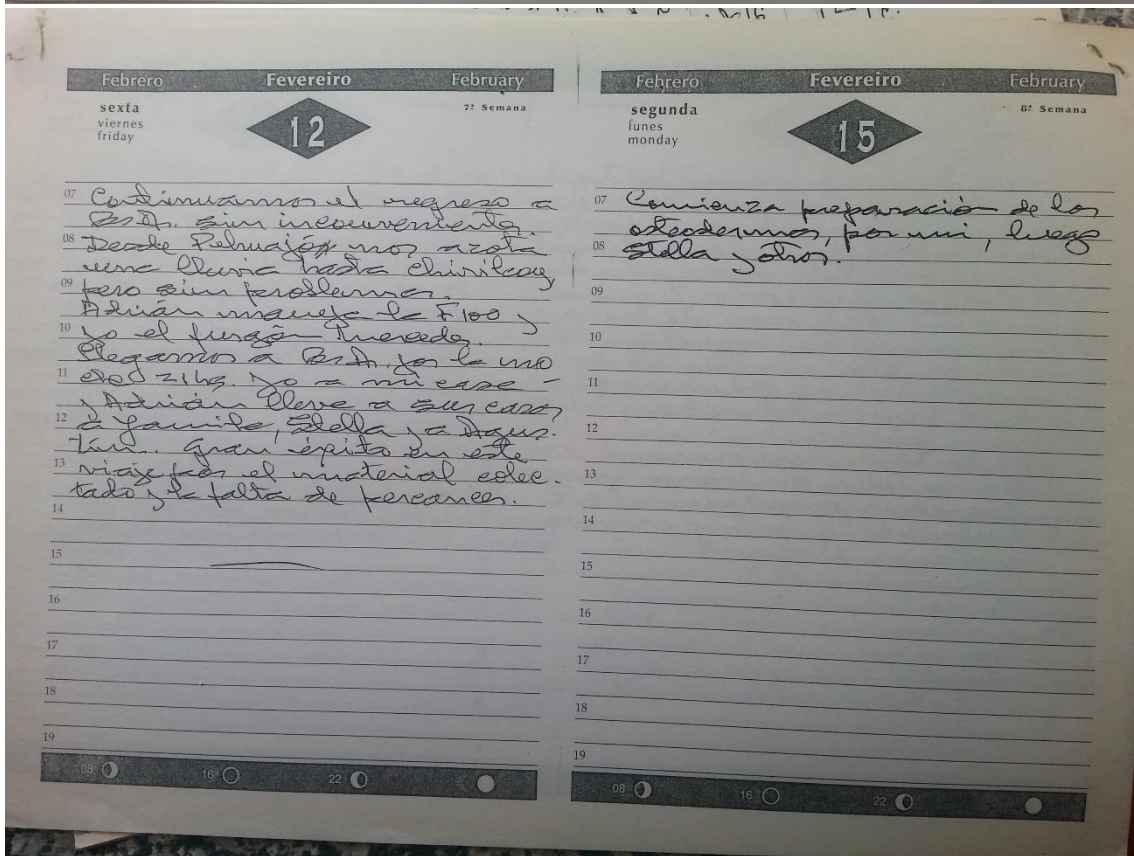 Febrero Fevereiro February
sexta
viernes
friday
12
7ª Semana
07 Continuamos el regreso a
Bs. A. sin inconveniente.
08 Desde Pehuajó nos azota
una lluvia hasta Chivilcoy
09 pero sin problemas.
Adrián maneja la F100 y
10 yo el furgón Mercedes.
Llegamos a Bs. A.
11 21 hs. Yo a mi casa
y Adrián lleva a sus casas
12 a Yamila, Stella y a Agus-
tín. Gran éxito en este
13 viaje por el material colec-
tado y la falta de percances.
14
15
16
17
18
19
08 16 22
Febrero Fevereiro February
segunda
lunes
monday
15
8ª Semana
07 Comienza preparación de los
osteodermos, por mi, luego
08 Stella y otros.
09
10
11
12
13
14
15
16
17
18
19
08 16 22